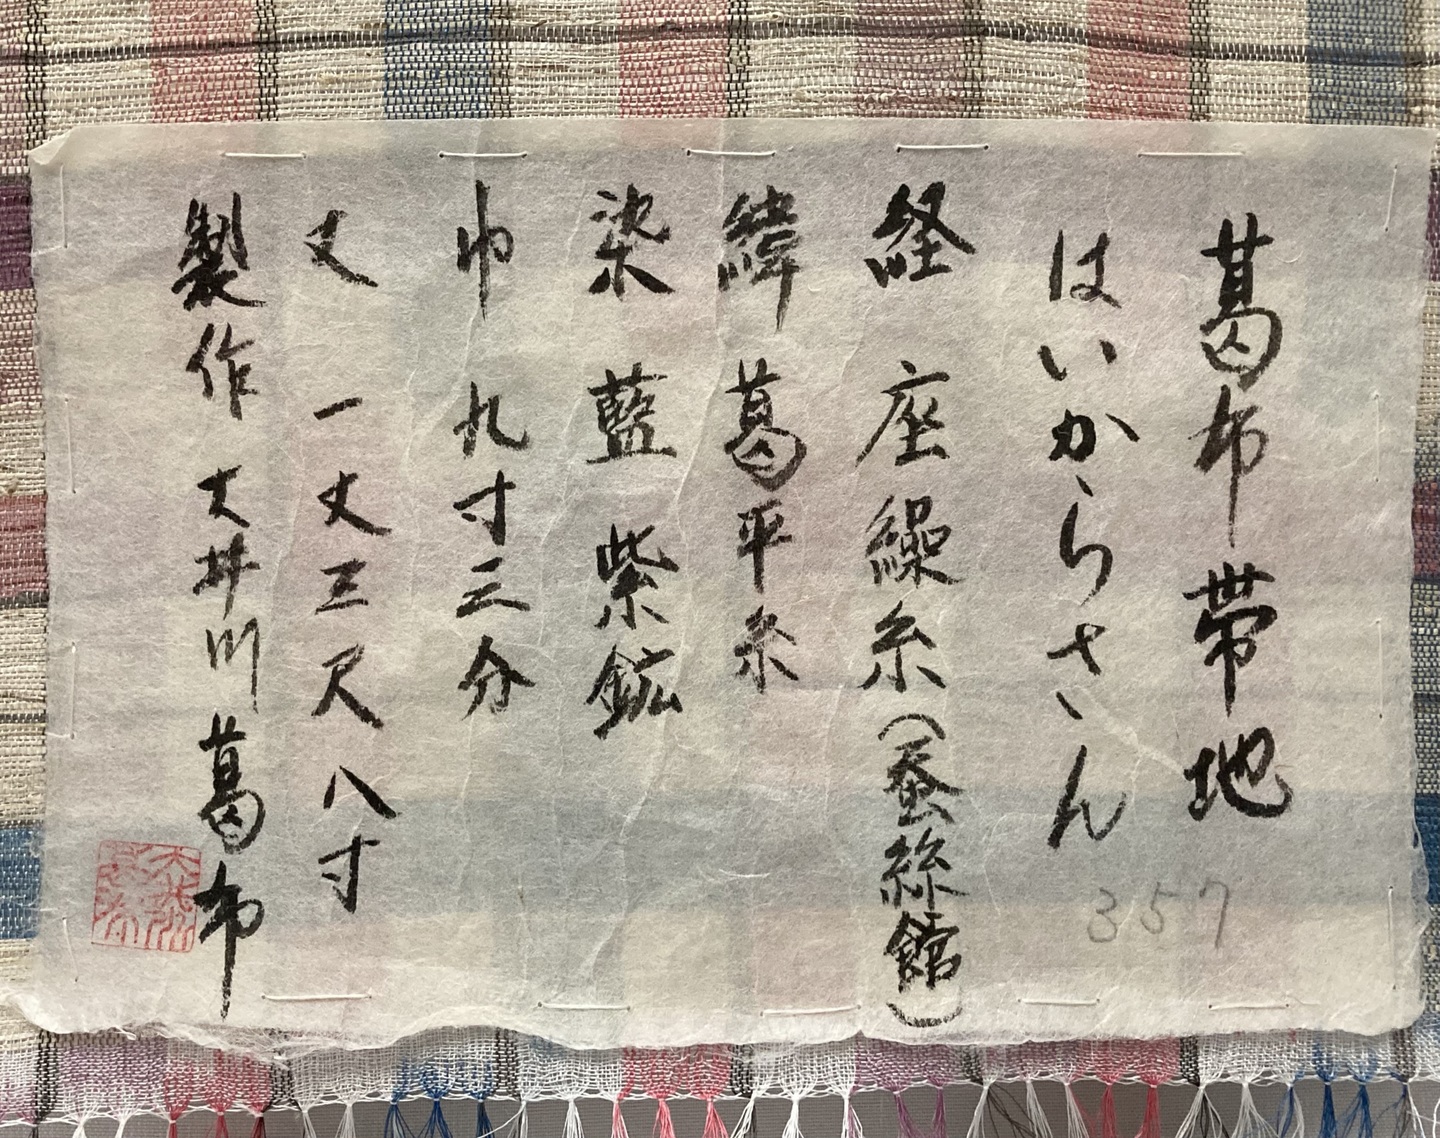 葛布帯地
はいからさん
357
経 座繰糸(蚕絲館)
緯 葛平糸
染 藍 紫鉱
巾 九寸三分
丈 一丈三尺八寸
製作 大井川葛布